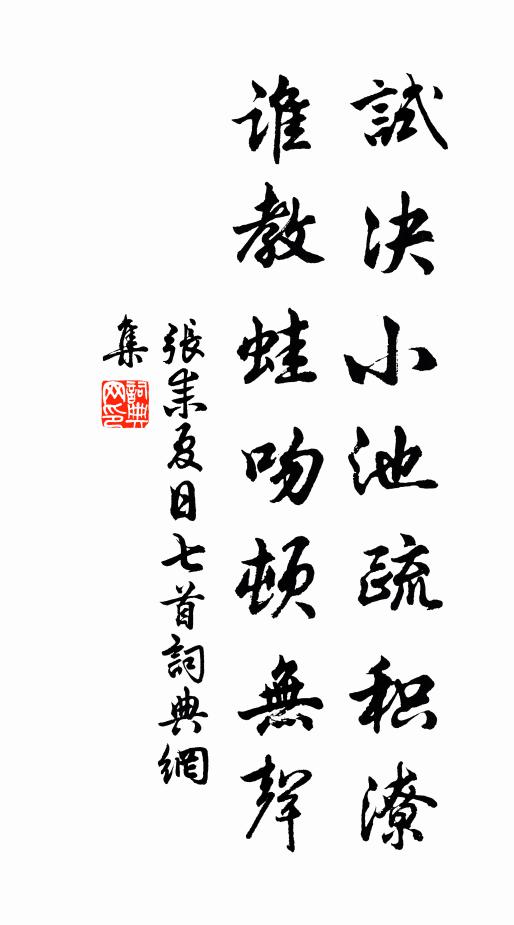 試决小池疏积潦
谁教蛙吻頓無聲
張耒夏日七首詞典網
集
詞典
网印